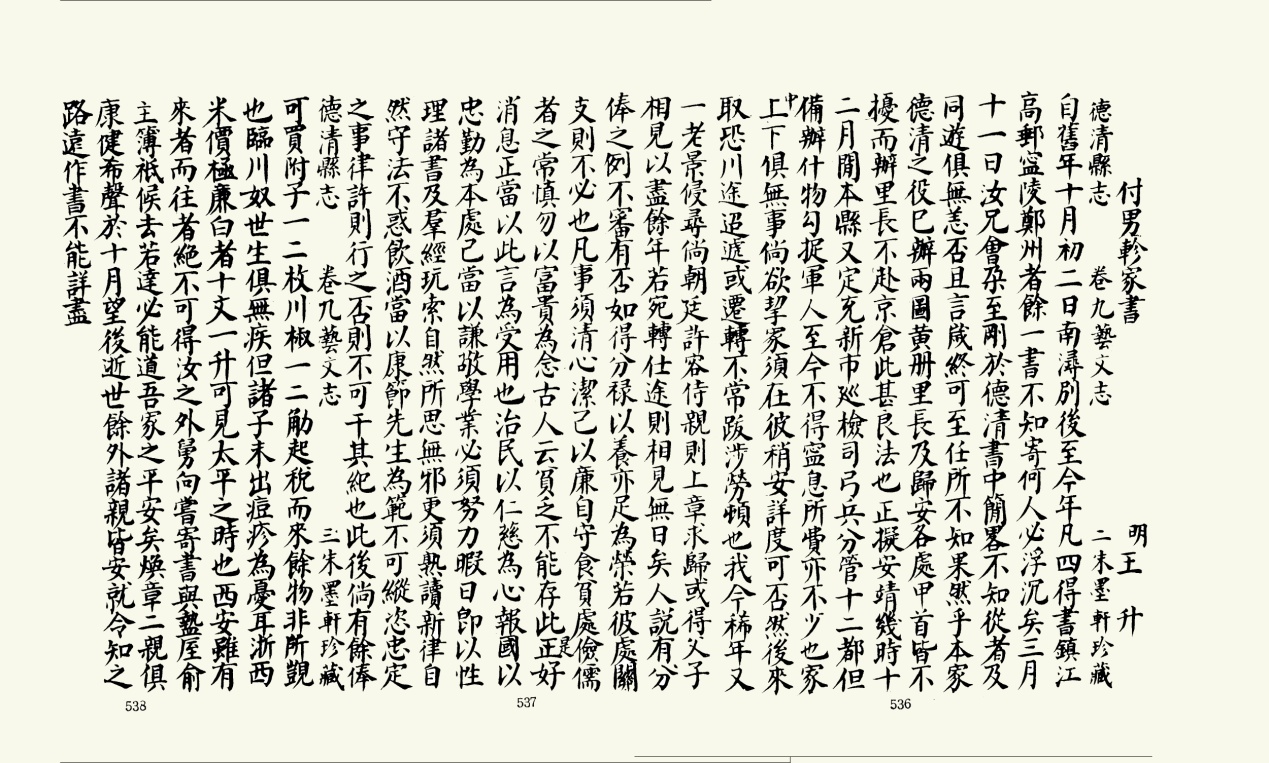 付男軫家書
明王　升
德清縣志　卷九藝文志　二朱墨軒珍藏
自舊年十月初二日南潯別後至今年凡四得書鎮江
高郵寍陵鄭州者餘一書不知寄何人必浮沉矣三月
十一日汝兄會孕至剛於德清書中簡畧不知從者及
同遊俱無恙否且言歲終可至任所不知果然乎本家
德清之役已辦兩圖黃冊里長及歸安各處甲首皆不
擾而辦里長不赴京倉此甚良法也正擬安靖幾時十
二月閒本縣又定充新市廵檢司弓兵分管十二都但
備辦什物勾捉軍人至今不得寍息所費亦不少也家
中上下俱無事尙欲挈家須在彼稍安詳度可否然後來
取恐川途迢遞或遷轉不常跋涉勞頓也我今稀年又
一老景侵尋尙朝廷許容侍親則上章求歸或得父子
相見以盡餘年若宛轉仕途則相見無日矣人說有分
俸之例不審有否如得分禄以養亦足為榮若彼處關
支則不必也凡事須清心潔己以廉自守食貧處儉儒
者之常慎勿以富貴為念古人云貧之不能存此正是好
消息正當以此言為受用也治民以仁慈為心報國以
忠勤為本處己當以謙敬學業必須努力暇日即以性
理諸書及羣經玩索自然所思無邪更須熟讀新律自
然守法不惑飲酒當以康節先生為範不可縱恣忠定
之事律許則行之否則不可干其紀也此後倘有餘俸
德清縣志　卷九藝文志　三朱墨軒珍藏
可買附子一二枚川椒一二觔起稅而來餘物非所覬
也臨川奴世生俱無疾但諸子未出痘疹為憂耳浙西
米價極廉白者十文一升可見太平之時也西安雖有
來者而往者絶不可得汝之外舅向嘗寄書與盩厔俞
主簿祇候去若達必能道吾家之平安矣煥章二親俱
康健希聲於十月望後逝世餘外諸親皆安就令知之
路遠作書不能詳盡
536
537
538